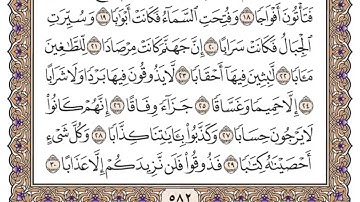 فَتَأْتُونَ أَفْوَاجًا ١٨ وَفُتِحَتِ ٱلسَّمَآءُ فَكَانَتْ أَبْوَٰبًا ١٩ وَسُيِّرَتِ
ٱلْجِبَالُ فَكَانَتْ سَرَابًا ٢٠ إِنَّ جَهَنَّمَ كَانَتْ مِرْصَادًا ٢١ لِّلطَّٰغِينَ
مَـَٔابًا ٢٢ لَّٰبِثِينَ فِيهَآ أَحْقَابًا ٢٣ لَّا يَذُوقُونَ فِيهَا بَرْدًا وَلَا شَرَابًا
٢٤ إِلَّا حَمِيمًا وَغَسَّاقًا ٢٥ جَزَآءً وِفَاقًا ٢٦ إِنَّهُمْ كَانُوا۟
لَا يَرْجُونَ حِسَابًا ٢٧ وَكَذَّبُوا۟ بِـَٔايَٰتِنَا كِذَّابًا ٢٨ وَكُلَّ شَىْءٍ
أَحْصَيْنَٰهُ كِتَٰبًا ٢٩ فَذُوقُوا۟ فَلَن نَّزِيدَكُمْ إِلَّا عَذَابًا ٣٠
٥٨٢